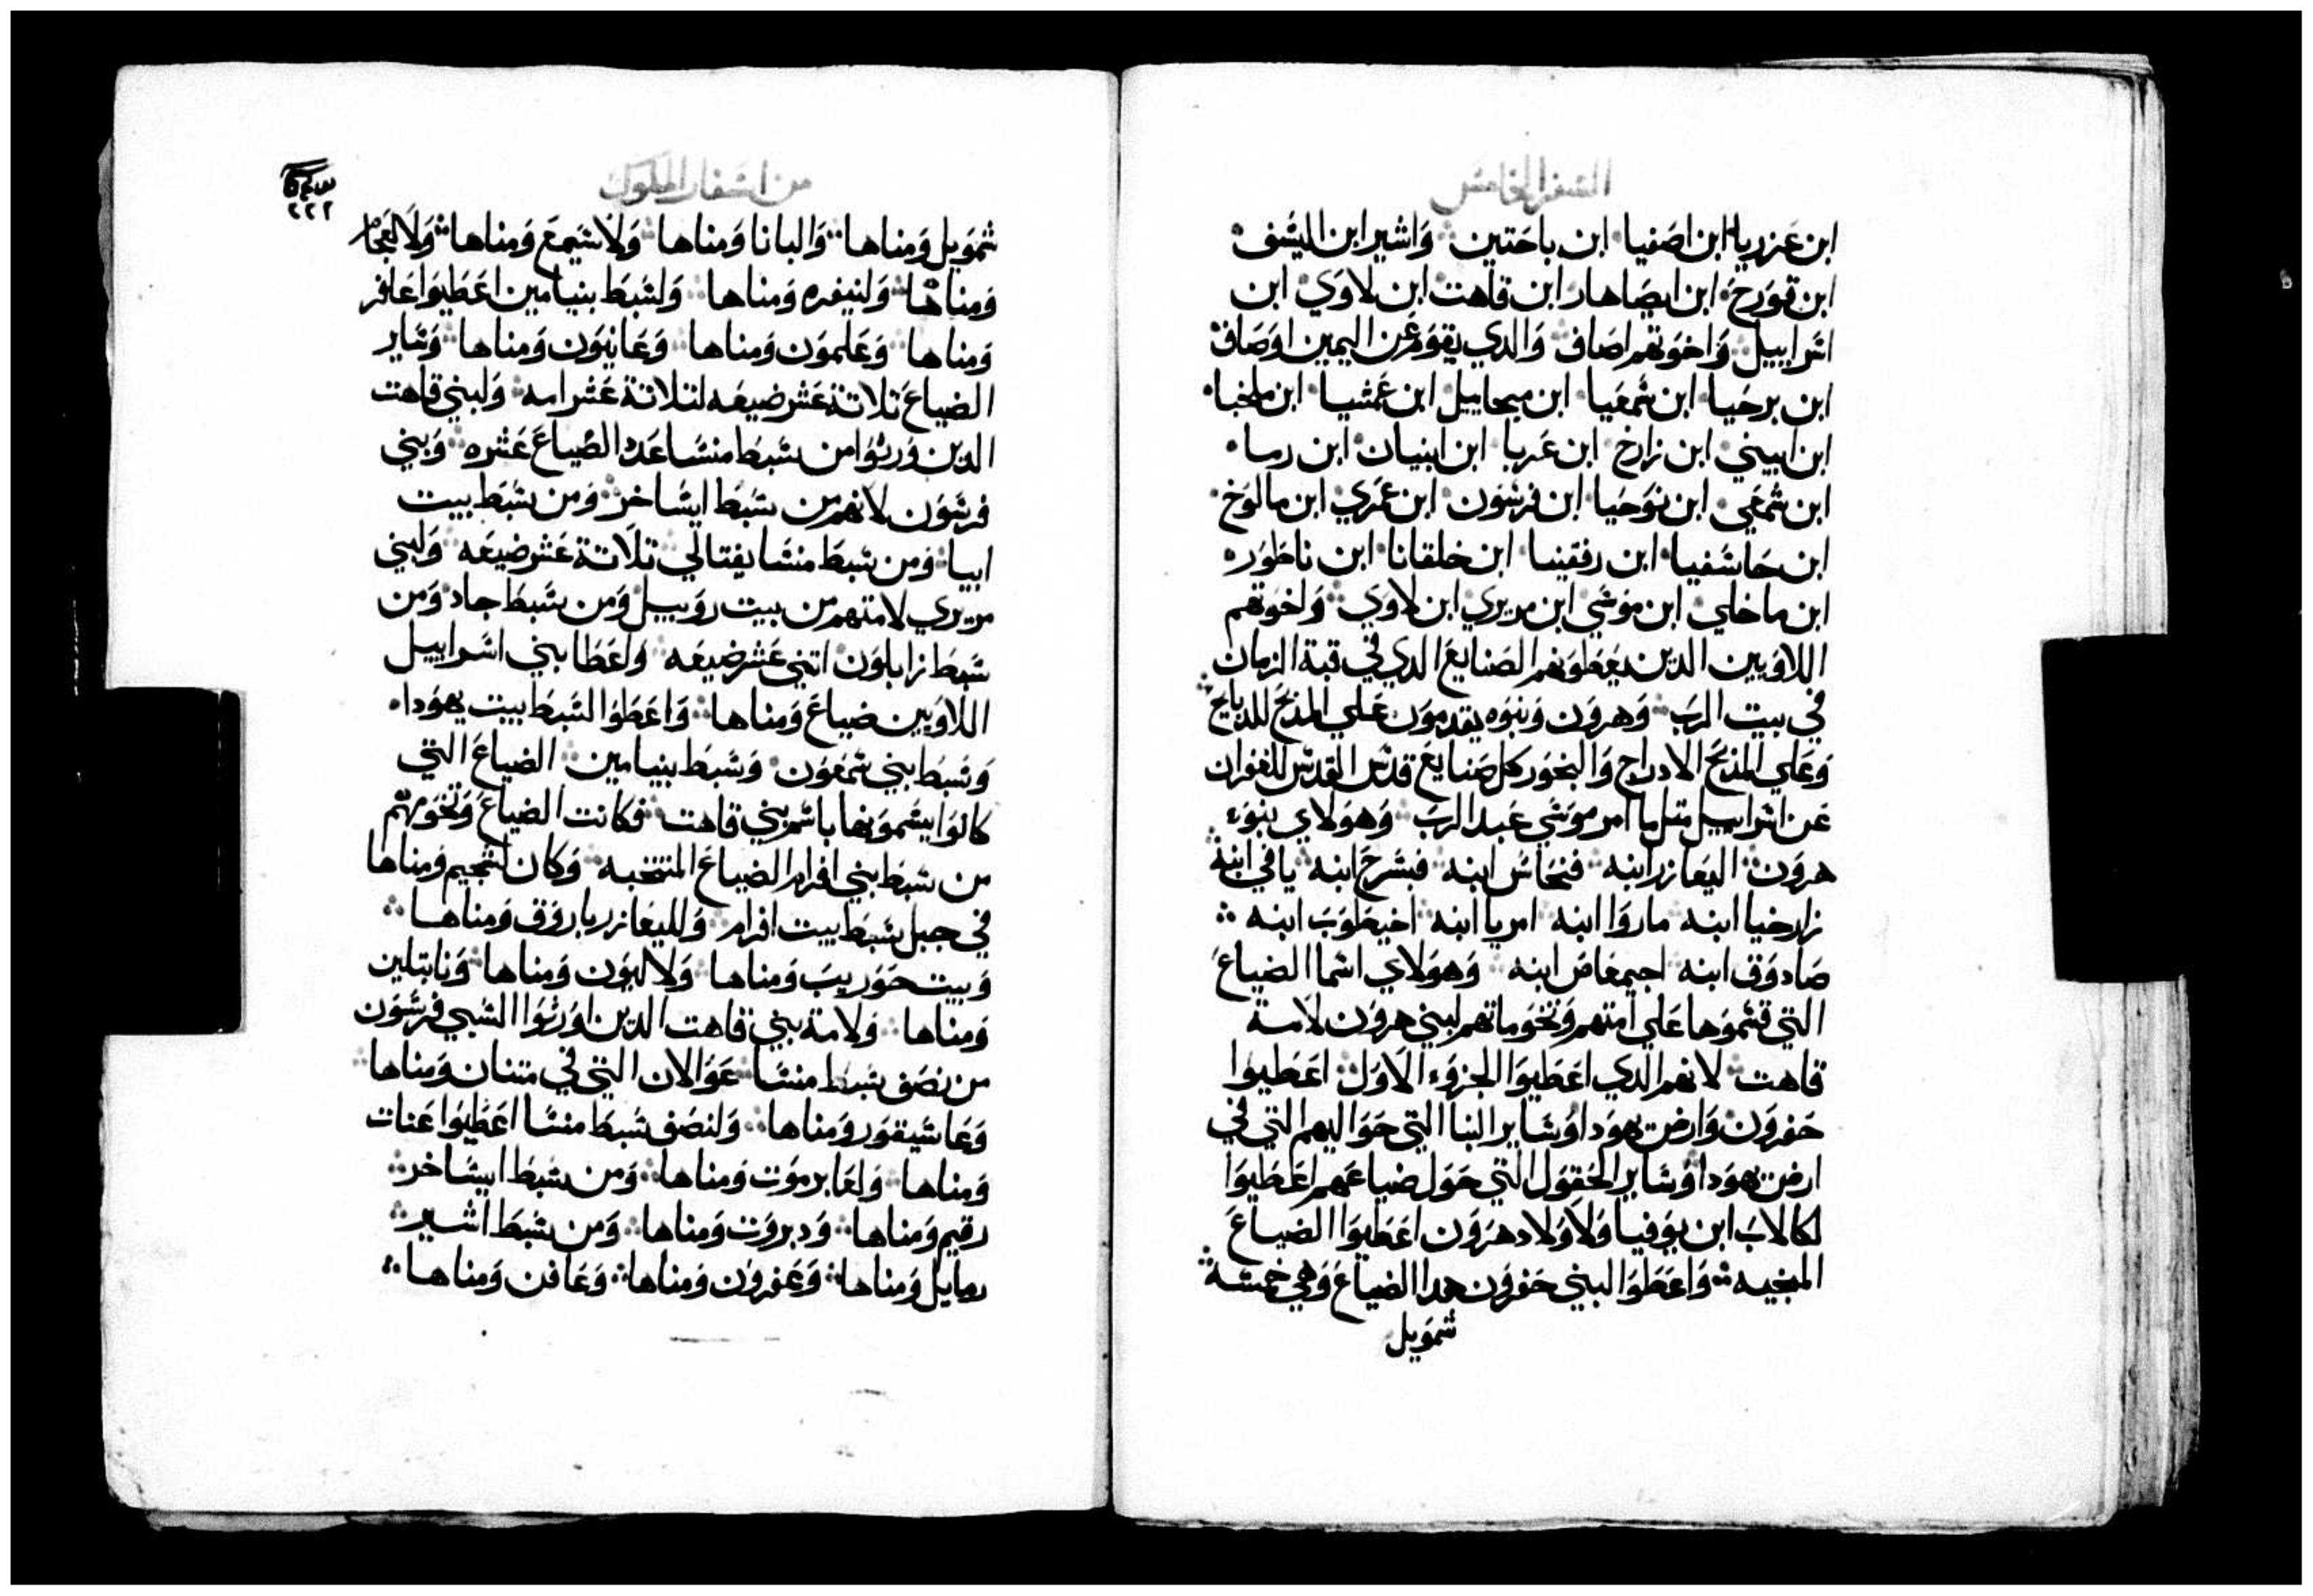 السفر الخامس
ابن عزريا ابن اصفيا ابن باحتين وَاشير ابن اليسف
ابن قورح ابن ايصاهار ابن قاهت ابن لاوَي ابن
اسراييل وَاخوَتهم اصاف وَالدي يقوَم عَن اليمين اوصاف
ابن برخيا ابن شمعَيا ابن ميحاييل ابن عَمشيا ابن ملخيا
ابن ابيني ابن زارخ ابن عَريا ابن ابنيان ابن رسا
ابن شمعَي ابن نوَحيا ابن فرشوَن ابن عمَري ابن مالوَخ
ابن حاشفيا ابن رفقينا ابن خلقانا ابن ناطوَره
ابن ماخلي ابن موَسَي ابن مريري ابن لاوَي وَاخوَتهم
اللاوَيين الدين يعَطوَنهم الصنايع الدي في قبة الزمان
في بيت الرب وَهروَن وَبنوَه يقدموَن عَلي المذبح للدبايح
وَعَلي المذبح الادراج وَالبخوَر كل صنايع قدس القدس للغفران
عَن اسراييل متل ما امر موَسَي عَبد الرب وَهوَلاي بنوَء
هروَن اليعَازر ابنه فنحاس ابنه فبشرح ابنه يافي ابنه
زارخيا ابنه ماروَا ابنه امريا ابنه اخيطوَب ابنه
صادوَق ابنه اجيمعَاص ابنه وَهوَلاي اسما الضياعَ
التي قسموَها عَلي امتهم وَتخوَماتهم لبني هروَن لامة
قاهت لانهم الدي اعَطيوَا الجزوَء الاوَل اعَطيوا
حفروَن وَارض يهوَدا وَساير البنا التي حوَاليهم التي في
ارض يهوَدا وَساير الحقوَل التي حوَل ضياعَهم اعَطيوَا
لكالاب ابن يوَفيا وَلاوَلاد هروَن اعَطيوَا الضياعَ
المنجيه وَاعَطوَا لبني حفروَن هدا الضياعَ وَهي خمسة
شموَيل
من اسفار الملوك
٢٢٢
شموَيل وَمناها وَالبانا وَمناها وَلاشيمعَ وَمناها وَلا
وَمناها وَلنيفره وَمناها وَلسَبط بنيامين اعَطيوَا عَافر
وَمناها وَعَلموَن وَمناها وَعَانيوَن وَمناها وَساير
الضياعَ تلاتة عَشر ضيعَه لتلاتة عَشر امه وَلبني قاهت
الدين وَرتوَا من سَبط منسَا عَدد الضياعَ عَشره وَبني
فرشوَن لانهم من سَبط ايسَاخر وَمن سَبط بيت
ابيا وَمن سَبط منسَا يفتالي تلاتة عَشر ضيعَه وَلبني
مريري لامتهم من بيت روَبيل وَمن سَبط جاد وَمن
سَبط زابلوَن اتني عَشر ضيعَه وَاعَطا بني اسراييل
اللاوَيين ضياعَ وَمناها وَاعَطوَا لسَبط بيت يهوَدا
وَسَبط بني شمعَوَن وَسَبط بنيامين الضياعَ التي
كانوَا يسَموَنها باسم بني قاهت فكانت الضياعَ وَتخوَمهم
من سَبط بني افرام الضياعَ المنتخبه وَكان لشجيم وَمناها
في جبل سَبط بيت افرام وَلليعَازر ياروَق وَمناها
وَبيت حوَريب وَمناها وَلالوَن وَمناها وَنابتلين
وَمناها وَلامة بني قاهت الدين اوَرتوَا السَبي فرشوَن
من نصف سَبط منسَا عَوَالان التي في متنان وَمناها
وَعَاشيقوَر وَمناها وَلنصف سَبط منسَا اعَطيوَا عَنات
وَمناها وَلعَابرموَت وَمناها وَمن سَبط ايسَاخر
رقيم وَمناها وَدبروَت وَمناها وَمن سَبط اشير
رمايل وَمناها وَعَفروَن وَمناها وَعَافن وَمناها